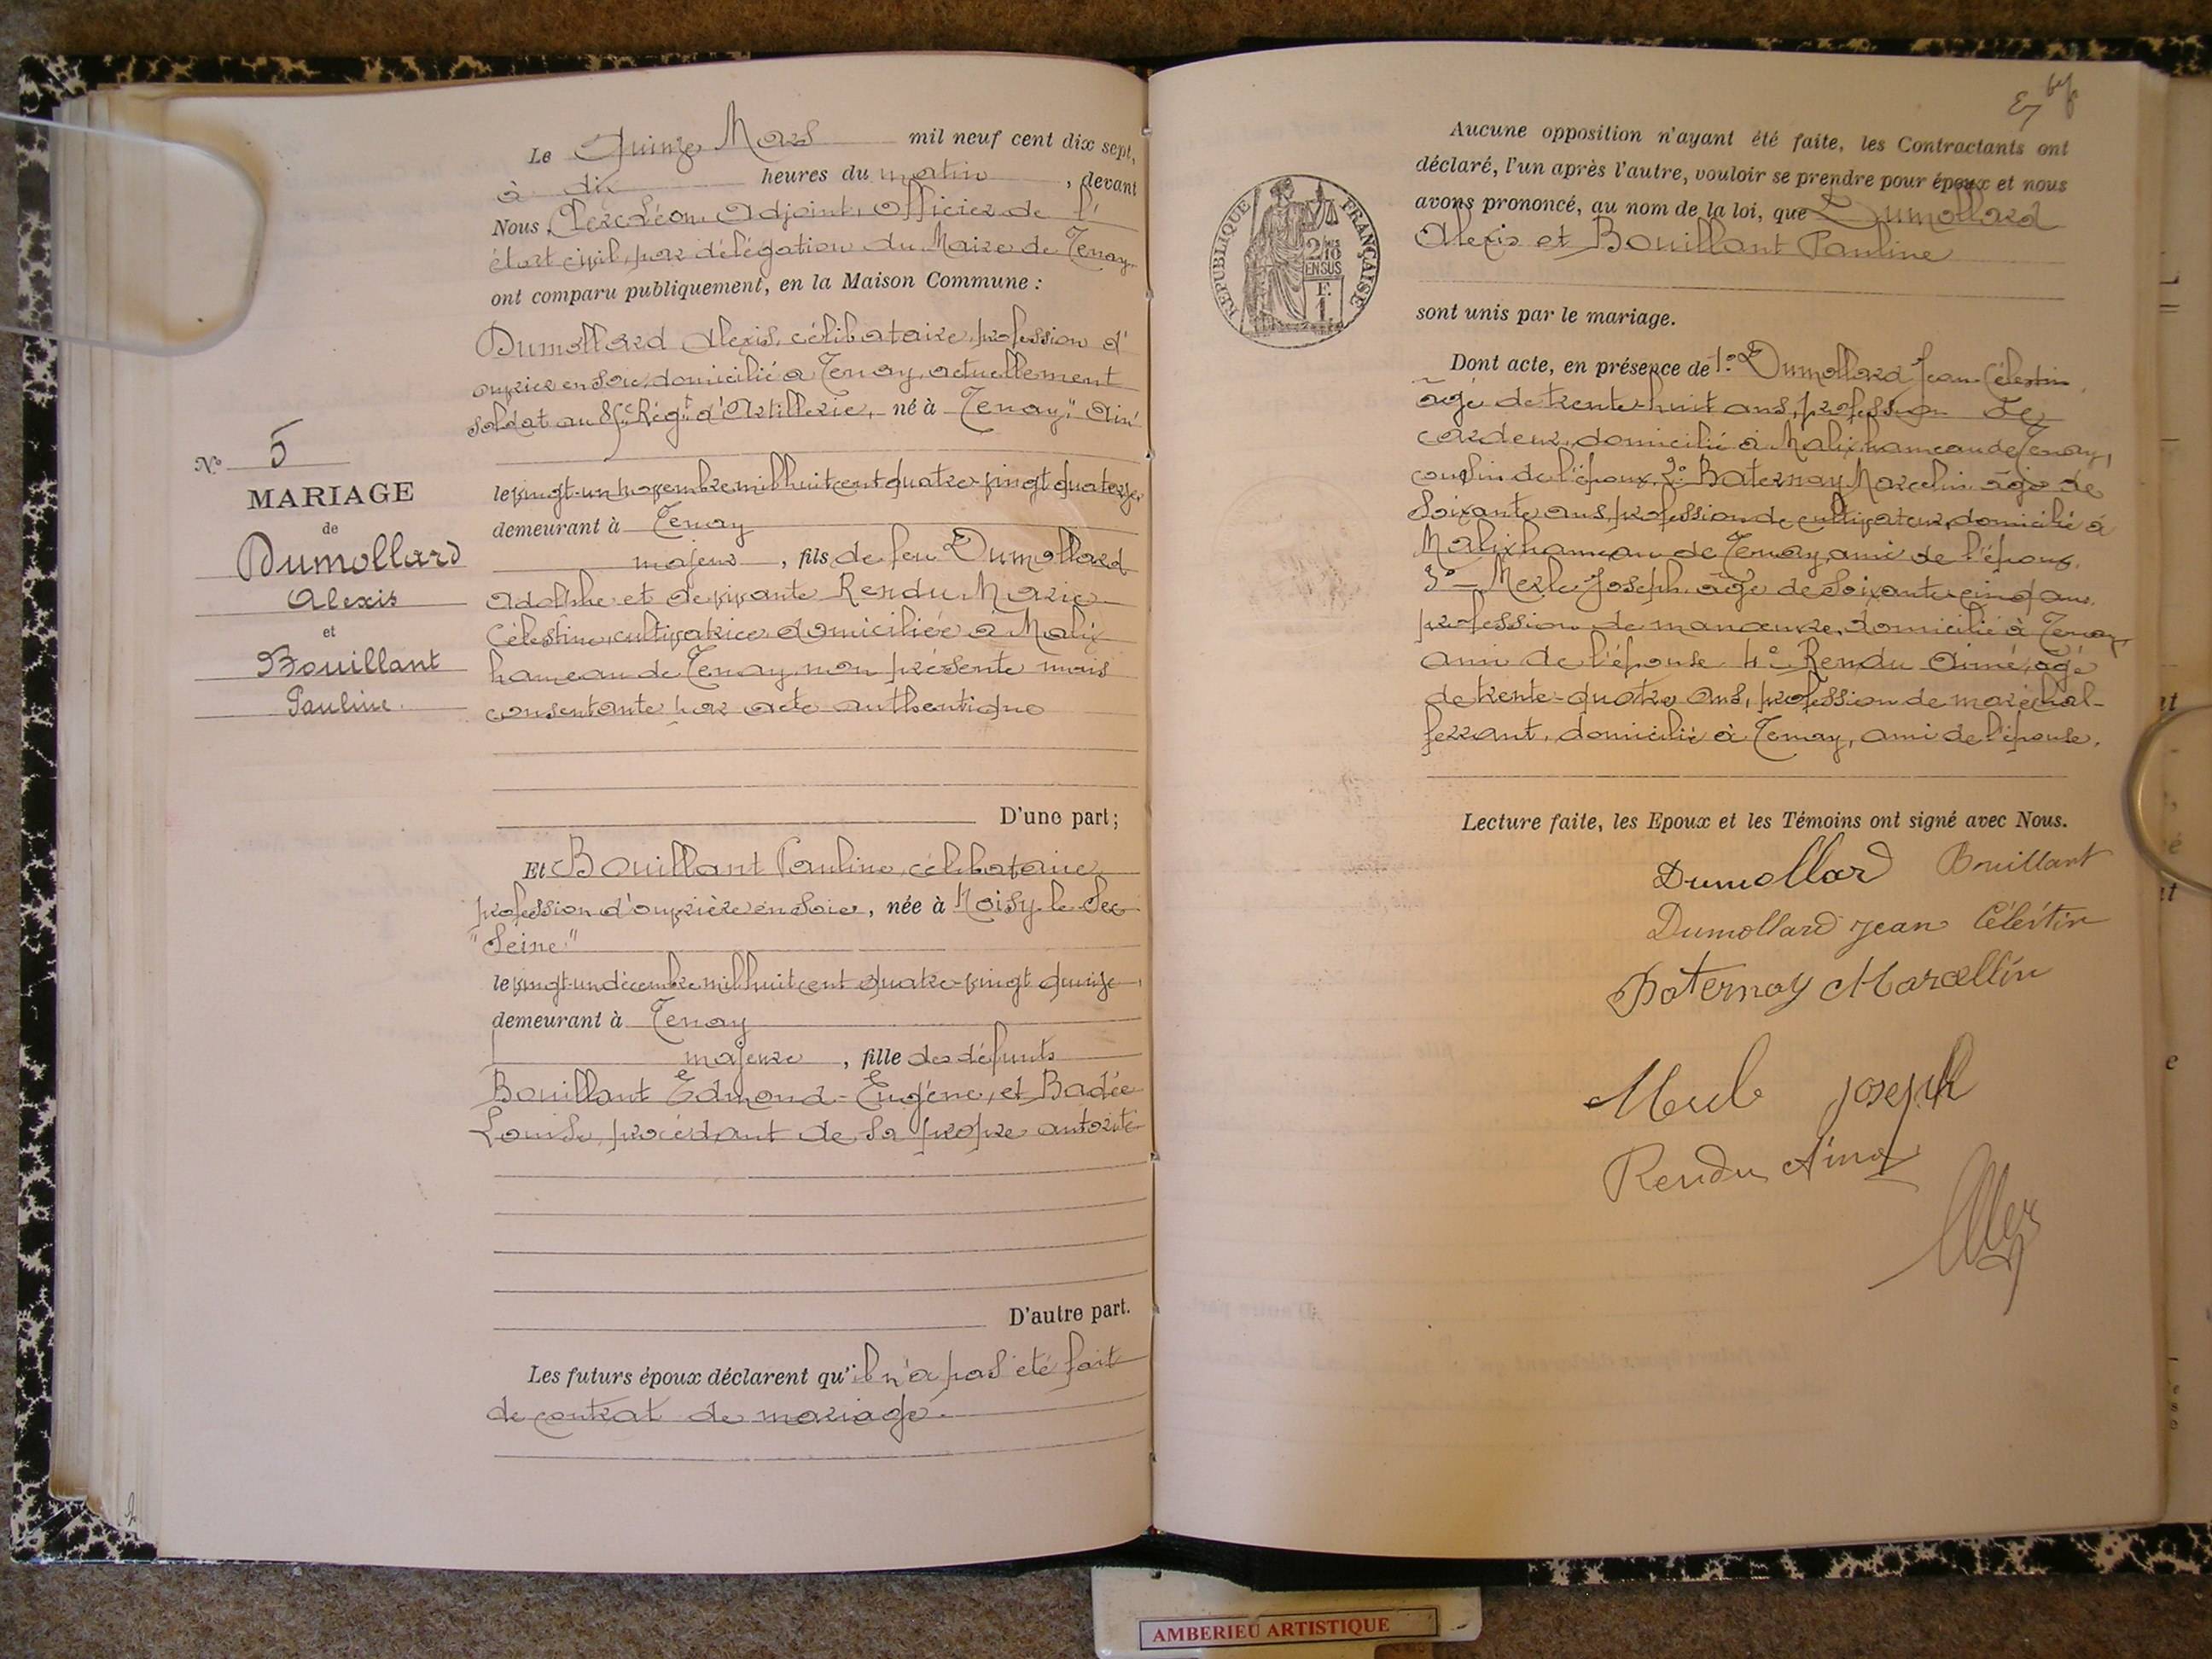 Le Quinze Mars mil neuf cent dix sept,
à dix heures du matin, devant
Nous Léon Adjoint, officier de l'
état civil, par délégation du Maire de Tenay
ont comparu publiquement, en la Maison Commune :
Dumollard Alexis, célibataire, profession d'
ouvrier en soie, domicilié à Tenay, actuellement
soldat au Régt d'Artillerie, né à Tenay "Ain"
le vingt-un novembre mil huit cent quatre-vingt quatorze
demeurant à Tenay
majeur, fils de feu Dumollard
Adolphe et de vivante Rendu Marie
Célestine, cultivatrice domiciliée à Malix
hameau de Tenay, non présente mais
consentante par acte authentique
D'une part ;
N° 5
MARIAGE
de
Dumollard
Alexis
et
Bouillant
Pauline.
Et Bouillant Pauline, célibataire,
profession d'ouvrière en soie, née à Noisy le Sec
"Seine"
le vingt-un décembre mil huit cent quatre-vingt quinze,
demeurant à Tenay
majeure, fille des défunts
Bouillant Edmond-Eugène, et Badée
Louise, procédant de sa propre autorité
D'autre part.
Les futurs époux déclarent qu'il n'a pas été fait
de contrat de mariage.
57 bis
REPUBLIQUE FRANÇAISE
2/10
EN SUS
F.
1
Aucune opposition n'ayant été faite, les Contractants ont
déclaré, l'un après l'autre, vouloir se prendre pour époux et nous
avons prononcé, au nom de la loi, que Dumollard
Alexis et Bouillant Pauline
sont unis par le mariage.
Dont acte, en présence de 1° Dumollard Jean Célestin
âgé de trente-huit ans, profession de
cardeur, domicilié à Malix hameau de Tenay,
cousin de l'époux, 2° Baternay Marcelin âgé de
soixante ans, profession de cultivateur, domicilié à
Malix hameau de Tenay, ami de l'époux.
3° Merle Joseph, âgé de soixante-cinq ans.
profession de manœuvre, domicilié à Tenay
ami de l'épouse 4° Rendu Aimé, âgé
de trente-quatre ans, profession de maréchal-
ferrant, domicilié à Tenay, ami de l'épouse.
Lecture faite, les Epoux et les Témoins ont signé avec Nous.
Dumollard Bouillant
Dumollard Jean Célestin
Baternay Marcellin
Merle Joseph
Rendu Aimé
AMBERIEU ARTISTIQUE